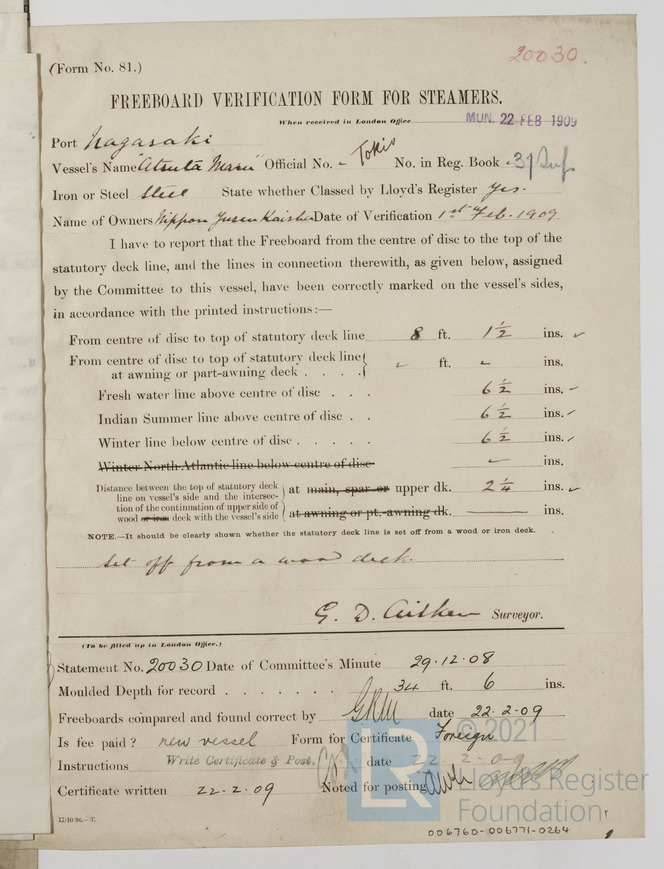 20030.
(Form No. 81.)
FREEBOARD VERIFICATION FORM FOR STEAMERS.
When received in London Office MUN. 22 FEB 1909
Port Nagasaki
Vessel's Name "Atsuta Maru" Official No. - Tokio No. in Reg. Book - 37
Iron or Steel Steel State whether Classed by Lloyd's Register Yes.
Name of Owners Nippon Yusen Kaisha Date of Verification 1st Feb. 1909
I have to report that the Freeboard from the centre of disc to the top of the
statutory deck line, and the lines in connection therewith, as given below, assigned
by the Committee to this vessel, have been correctly marked on the vessel's sides,
in accordance with the printed instructions:—
From centre of disc to top of statutory deck line 8 ft. 1 1/2 ins.
From centre of disc to top of statutory deck line
at awning or part-awning deck . . . . ft. ins.
Fresh water line above centre of disc . . . 6 1/2 ins.
Indian Summer line above centre of disc . . 6 1/2 ins.
Winter line below centre of disc . . . . . 6 1/2 ins.
Winter North Atlantic line below centre of disc ins.
Distance between the top of statutory deck
line on vessel's side and the intersec-
tion of the continuation of upper side of
wood or iron deck with the vessel's side
at main, spar or upper dk. 2 1/4 ins.
at awning or pt.-awning dk. ins.
NOTE.—It should be clearly shown whether the statutory deck line is set off from a wood or iron deck.
Set off from a wood deck.
G. D. Aitken Surveyor.
(To be filled up in London Office.)
Statement No. 20030 Date of Committee's Minute 29.12.08
Moulded Depth for record . . . . . . . 34 ft. 6 ins.
Freeboards compared and found correct by GRM date 22.2.09
Is fee paid? new vessel Form for Certificate Foreign
Instructions Write Certificate & Post. date 22.2.09
Certificate written 22-2.09 Noted for posting
© 2021
LR
Lloyd's Register
Foundation
006760-006771-0264